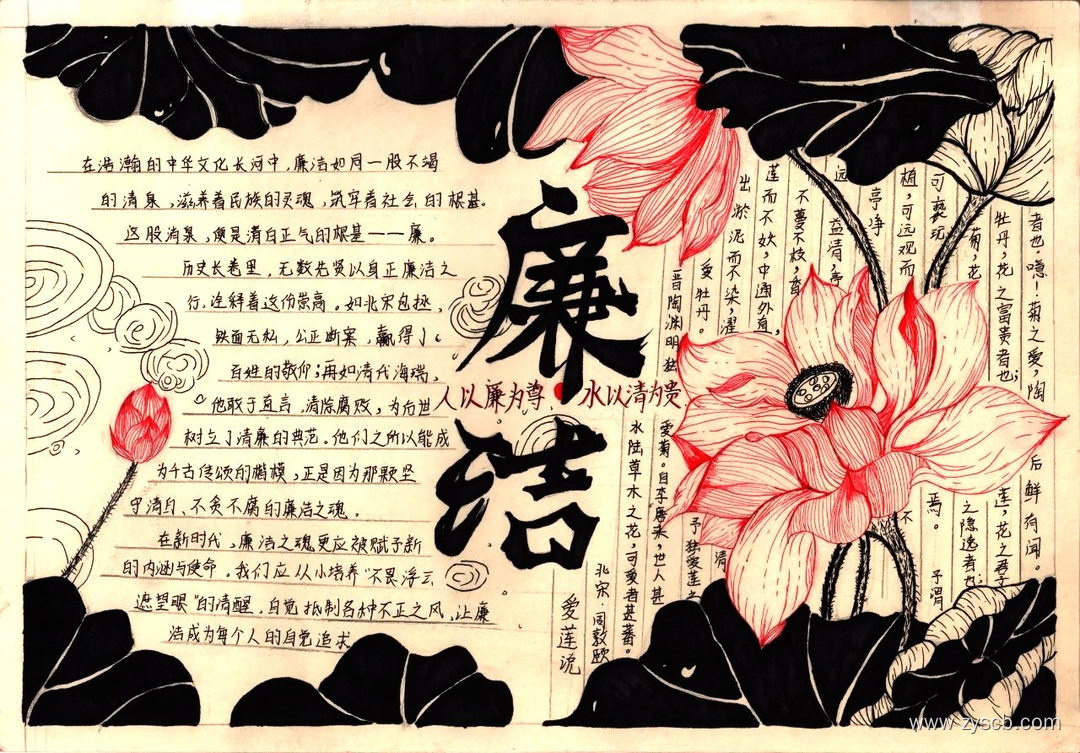 在浩瀚的中华文化长河中，廉洁如同一股不竭
的清泉，滋养着民族的灵魂，筑牢着社会的根基。
这股清泉，便是清白正气的根基——廉。
历史长卷里，无数先贤以身正廉洁之
行，诠释着这份崇高。如北宋包拯，
铁面无私，公正断案，赢得了
百姓的敬仰；再如清代海瑞，
他敢于直言，清除腐败，为后世
树立了清廉的典范。他们之所以能成
为千古传颂的楷模，正是因为那颗坚
守清白、不贪不腐的廉洁之魂。
在新时代，廉洁之魂更应被赋予新
的内涵与使命。我们应从小培养“不畏浮云
遮望眼”的清醒，自觉抵制各种不正之风，让廉
洁成为每个人的自觉追求
廉洁
人以廉为尊 水以清为贵
爱莲说
北宋·周敦颐
水陆草木之花，可爱者甚蕃。
晋陶渊明独
爱菊。自李唐来，世人甚
爱牡丹。
予独爱莲之
出淤泥而不染，濯
清
莲而不妖，中通外直，
不蔓不枝，香
远
益清，亭
亭净
植，可远观而
不
可亵玩
焉。予谓
菊，花
之隐逸者也；
牡丹，花之富贵者也；
莲，花之君子
者也。噫！菊之爱，陶
后鲜有闻。
www.zyscb.com